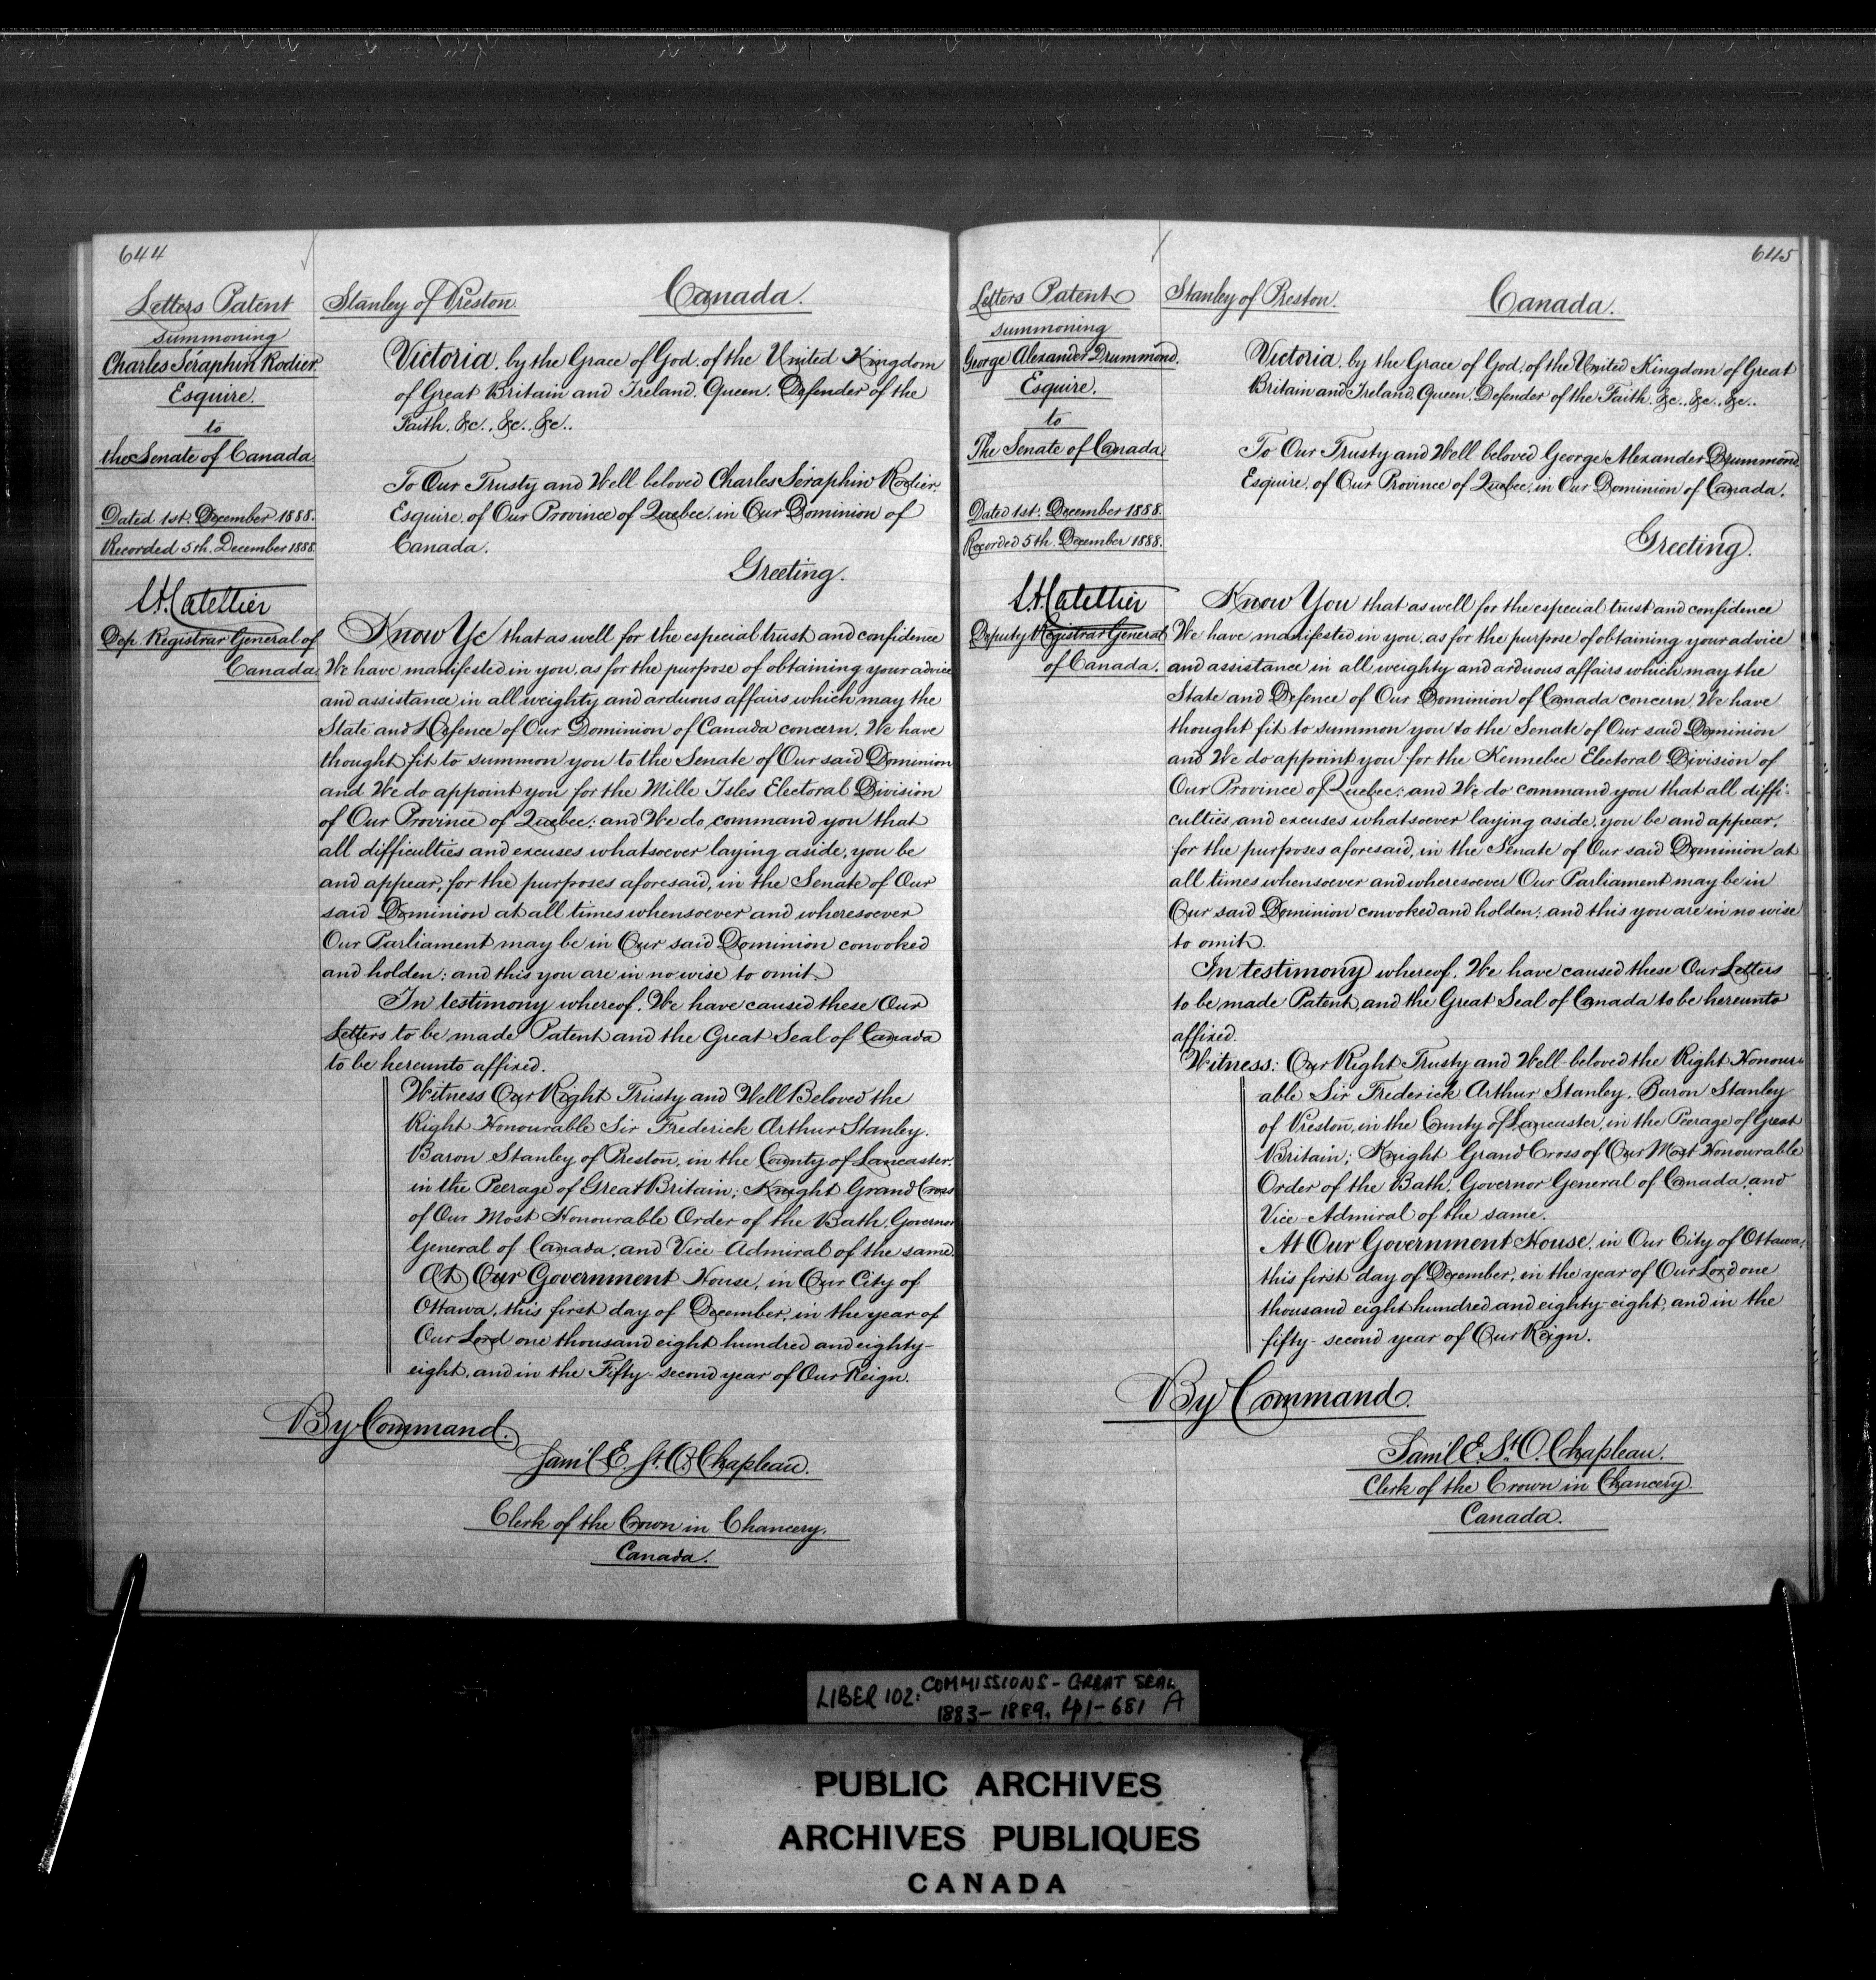 644
Letters Patent
summoning
Charles Séraphin Rodier
Esquire.
to
the Senate of Canada
Dated 1st. December 1888.
Recorded 5th. December 1888.
Dep. Registrar General of
Canada
Stanley of Preston.
Canada.
Victoria, by the Grace of God, of the United Kingdom
of Great Britain and Ireland, Queen, Defender of the
Faith, &c., &c., &c..
To Our Trusty and Well beloved Charles Séraphin Rodier,
Esquire, of Our Province of Quebec, in Our Dominion of
Canada.
Greeting.
Know Ye that as well for the especial trust and confidence
We have manifested in you, as for the purpose of obtaining your advice
and assistance in all weighty and arduous affairs which may the
State and Defence of Our Dominion of Canada concern, We have
thought fit to summon you to the Senate of Our said Dominion
and We do appoint you for the Mille Isles Electoral Division
of Our Province of Quebec; and We do command you that
all difficulties and excuses whatsoever laying aside, you be
and appear, for the purposes aforesaid, in the Senate of Our
said Dominion at all times whensoever and wheresoever
Our Parliament may be in Our said Dominion convoked
and holden; and this you are in no wise to omit.
In testimony whereof, We have caused these Our
Letters to be made Patent and the Great Seal of Canada
to be hereunto affixed.
Witness Our Right Trusty and Well Beloved the
Right Honourable Sir Frederick Arthur Stanley,
Baron Stanley of Preston, in the County of Lancaster,
in the Peerage of Great Britain; Knight Grand Cross
of Our Most Honourable Order of the Bath, Governor
General of Canada, and Vice-Admiral of the same.
At Our Government House, in Our City of
Ottawa, this first day of December, in the year of
Our Lord one thousand eight hundred and eighty-
eight, and in the Fifty-second year of Our Reign.
By Command.
Saml E. St. O. Chapleau.
Clerk of the Crown in Chancery.
Canada.
645
Letters Patent
summoning
George Alexander Drummond.
Esquire.
to
The Senate of Canada
Dated 1st. December 1888.
Recorded 5th. December 1888.
Deputy Registrar General
of Canada.
Stanley of Preston.
Canada.
Victoria, by the Grace of God, of the United Kingdom of Great
Britain and Ireland, Queen, Defender of the Faith, &c., &c., &c..
To Our Trusty and Well beloved George Alexander Drummond,
Esquire, of Our Province of Quebec, in Our Dominion of Canada.
Greeting.
Know You that as well for the especial trust and confidence
We have manifested in you, as for the purpose of obtaining your advice
and assistance in all weighty and arduous affairs which may the
State and Defence of Our Dominion of Canada concern, We have
thought fit to summon you to the Senate of Our said Dominion
and We do appoint you for the Kennebec Electoral Division of
Our Province of Quebec; and We do command you that all diffi-
culties and excuses whatsoever laying aside, you be and appear,
for the purposes aforesaid, in the Senate of Our said Dominion at
all times whensoever and wheresoever Our Parliament may be in
Our said Dominion convoked and holden; and this you are in no wise
to omit.
In testimony whereof, We have caused these Our Letters
to be made Patent, and the Great Seal of Canada to be hereunto
affixed.
Witness: Our Right Trusty and Well-beloved the Right Honour-
able Sir Frederick Arthur Stanley, Baron Stanley
of Preston, in the County of Lancaster, in the Peerage of Great
Britain; Knight Grand Cross of Our Most Honourable
Order of the Bath, Governor General of Canada, and
Vice-Admiral of the same.
At Our Government House, in Our City of Ottawa,
this first day of December, in the year of Our Lord one
thousand eight hundred and eighty-eight, and in the
fifty-second year of Our Reign.
By Command.
Saml E. St. O. Chapleau.
Clerk of the Crown in Chancery.
Canada.
LIBER 102: COMMISSIONS - GREAT SEAL
1883-1889, 41-681 A
PUBLIC ARCHIVES
ARCHIVES PUBLIQUES
CANADA